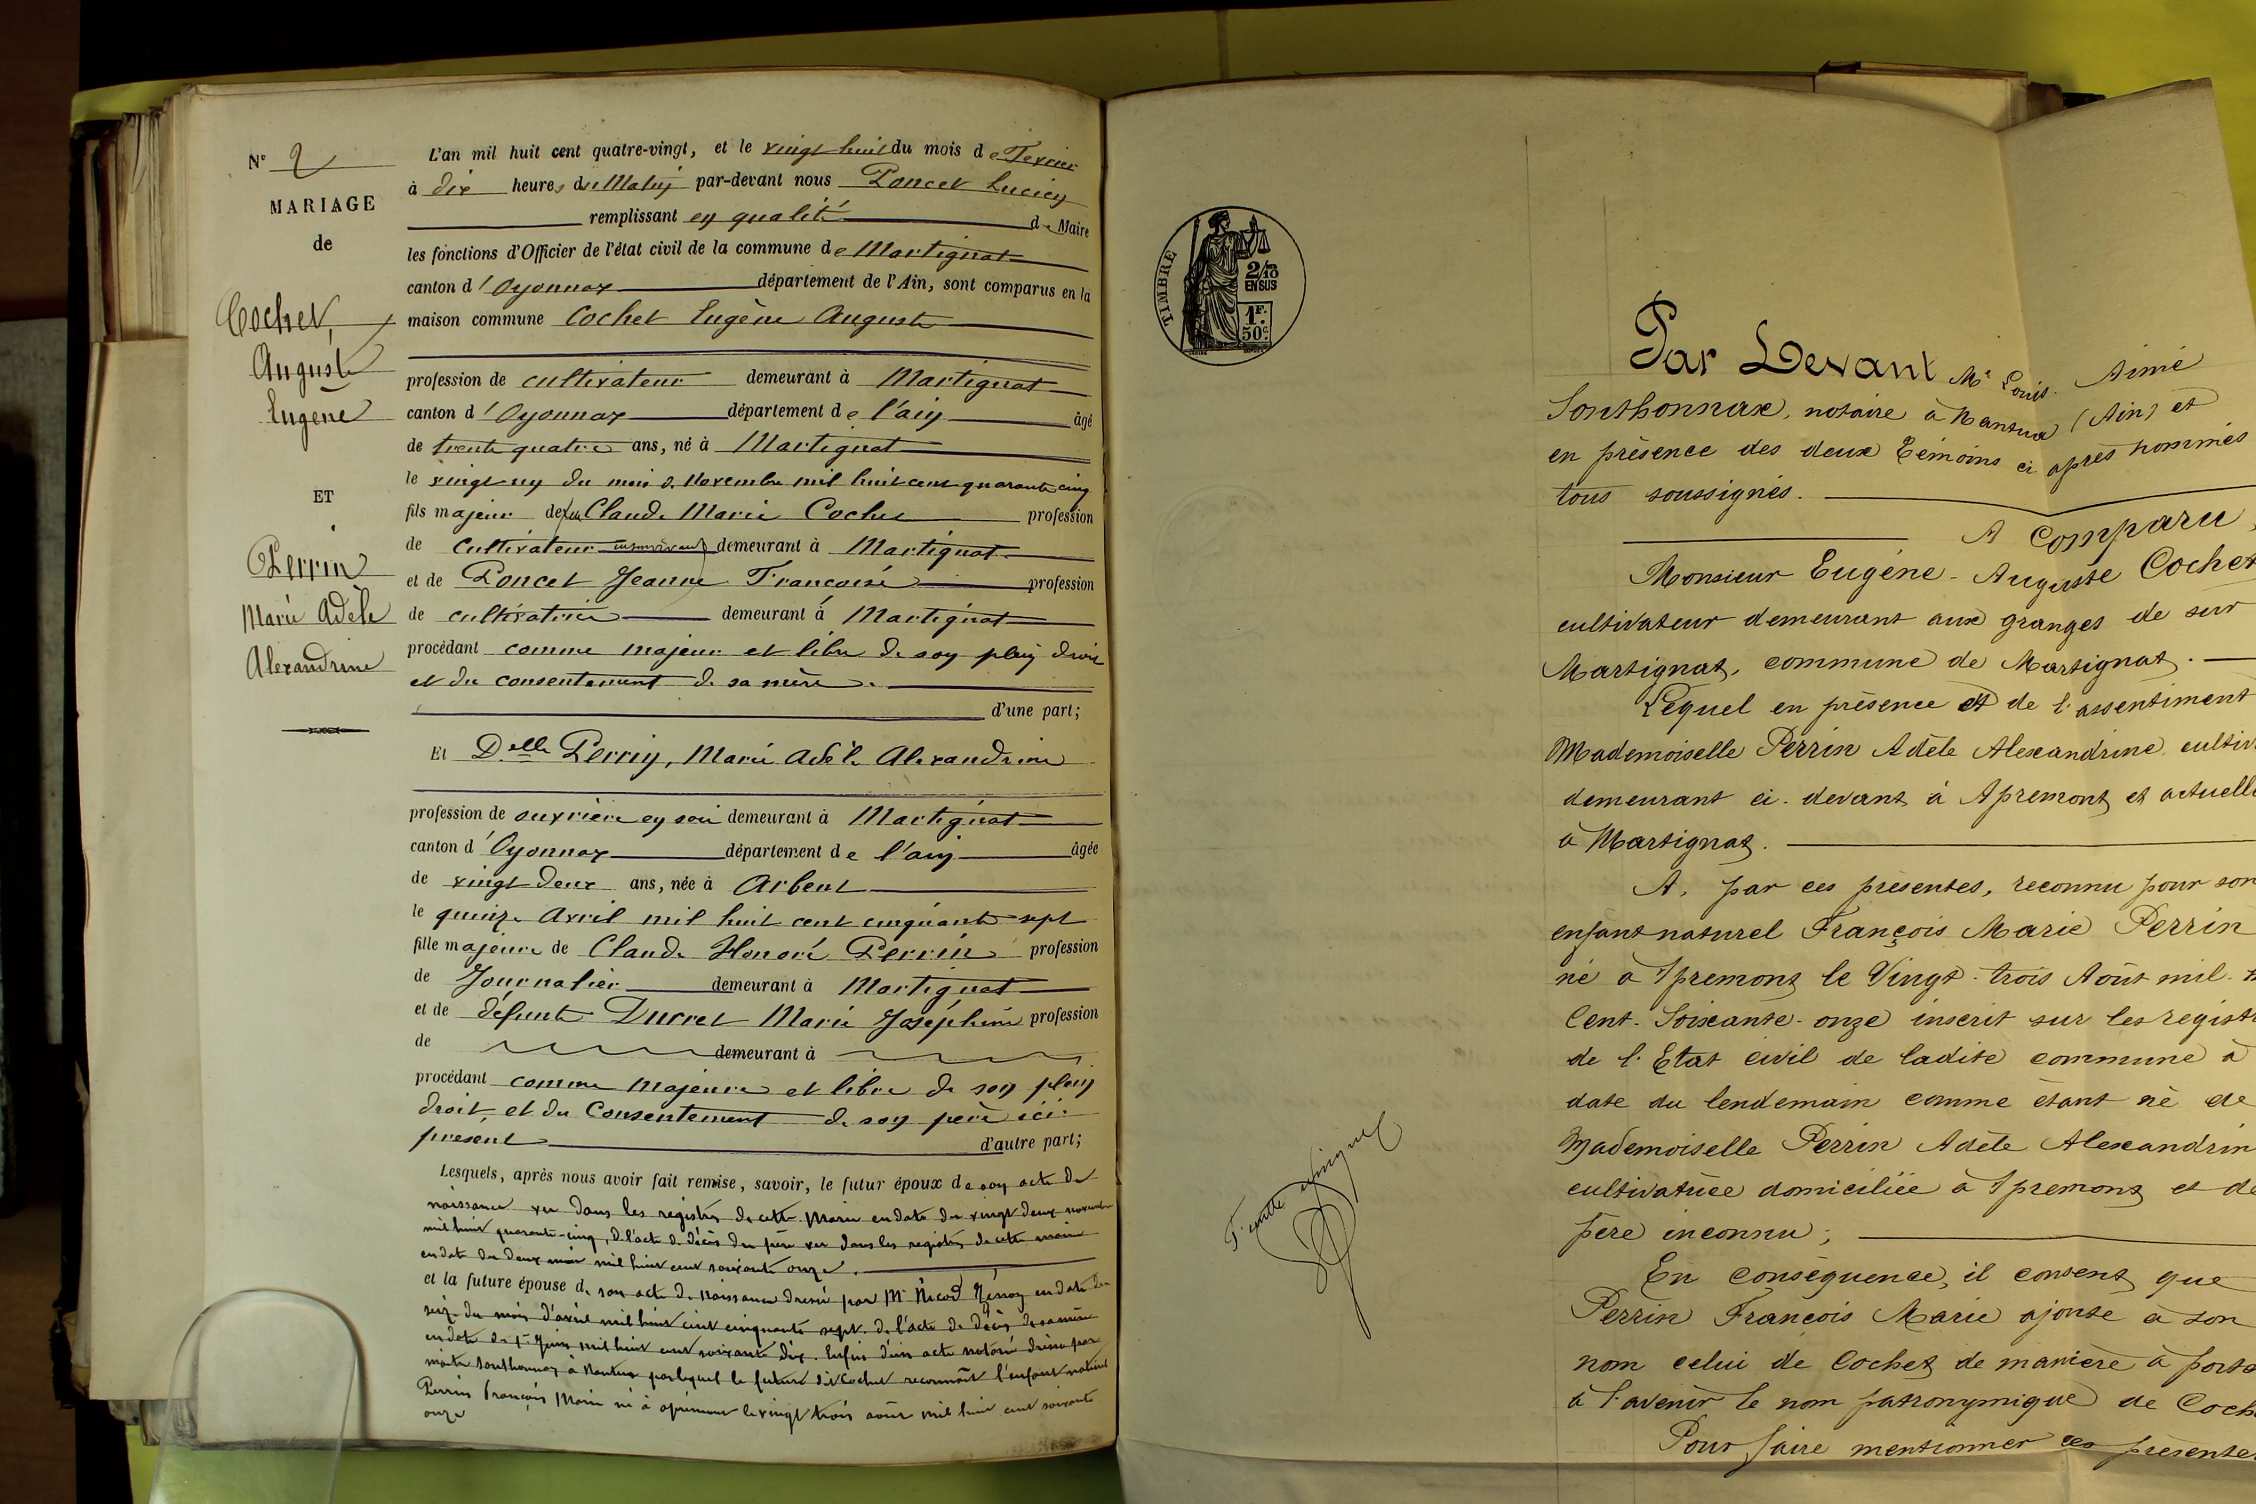 N° 2
MARIAGE
de
Cochet,
Auguste
Eugène
ET
Perrin
Marie Adèle
Alexandrine
L'an mil huit cent quatre-vingt, et le vingt huit du mois de Fevrier
à dix heures du Matin par-devant nous Poncet Lucien
remplissant en qualité de Maire
les fonctions d'Officier de l'état civil de la commune de Martignat
canton d'Oyonnax département de l'Ain, sont comparus en la
maison commune Cochet Eugène Auguste
profession de cultivateur demeurant à Martignat
canton d'Oyonnax département de l'ain âgé
de trente quatre ans, né à Martignat
le vingt un du mois de Novembre mil huit cent quarante cinq
fils majeur de feu Claude Marie Cochet profession
de Cultivateur demeurant à Martignat
et de Poncet Jeanne Françoise profession
de cultivatrice demeurant à Martignat
procédant comme majeur et libre de son plein droit
et du consentement de sa mère.
d'une part;
Et Delle Perrin, Marie Adèle Alexandrine
profession de ouvrière en soie demeurant à Martignat
canton d'Oyonnax département de l'ain âgée
de vingt deux ans, née à Arbent
le quinze Avril mil huit cent cinquante sept
fille majeure de Claude Honoré Perrin profession
de Journalier demeurant à Martignat
et de défunte Durret Marie Joséphine profession
de demeurant à
procédant comme majeure et libre de son plein
droit, et du Consentement de son père ici
présent d'autre part;
Lesquels, après nous avoir fait remise, savoir, le futur époux de son acte de
naissance vu dans les registres de cette Mairie en date du vingt deux novembre
mil huit quarante-cinq, de l'acte de décès du père vu dans les registres de cette mairie
en date du deux mai mil huit cent soixante onze.
et la future épouse de son acte de naissance dressé par Mr Nicod en date du
seize du mois d'avril mil huit cent cinquante sept. de l'acte de décès de sa mère
en date du 1er Juin mil huit cent soixante dix. Enfin d'un acte notarié dressé par
maître Sonthonnax à Nantua par lequel le futur dit Cochet reconnaît l'enfant naturel
Perrin François Marie né à apremont le vingt trois août mil huit cent soixante
onze
TIMBRE
2/10
EN SUS
1F.
50c.
Par Devant Me Louis Aimé
Sonthonnax, notaire à Nantua (Ain) et
en présence des deux témoins ci après nommés
tous soussignés.
A Comparu,
Monsieur Eugéne-Auguste Cochet
cultivateur demeurant aux granges de sur
Martignat, commune de Martignat.
Lequel en présence et de l'assentiment
Mademoiselle Perrin Adèle Alexandrine, cultiv
demeurant ci-devant à Apremont et actuelle
à Martignat.
A, par ces présentes, reconnu pour son
enfant naturel François Marie Perrin
né à Apremont le Vingt-trois Août mil-h
Cent-Soixante-onze inscrit sur les régistr
de l'Etat civil de ladite commune à
date du lendemain comme étant né de
Mademoiselle Perrin Adèle Alexandrin
cultivatrice domiciliée à Apremont et de
père inconnu;
En conséquence, il consent que
Perrin François Marie ajoute à son
nom celui de Cochet de manière à porte
à l'avenir le nom patronymique de Coch
Pour faire mentionner ces présente